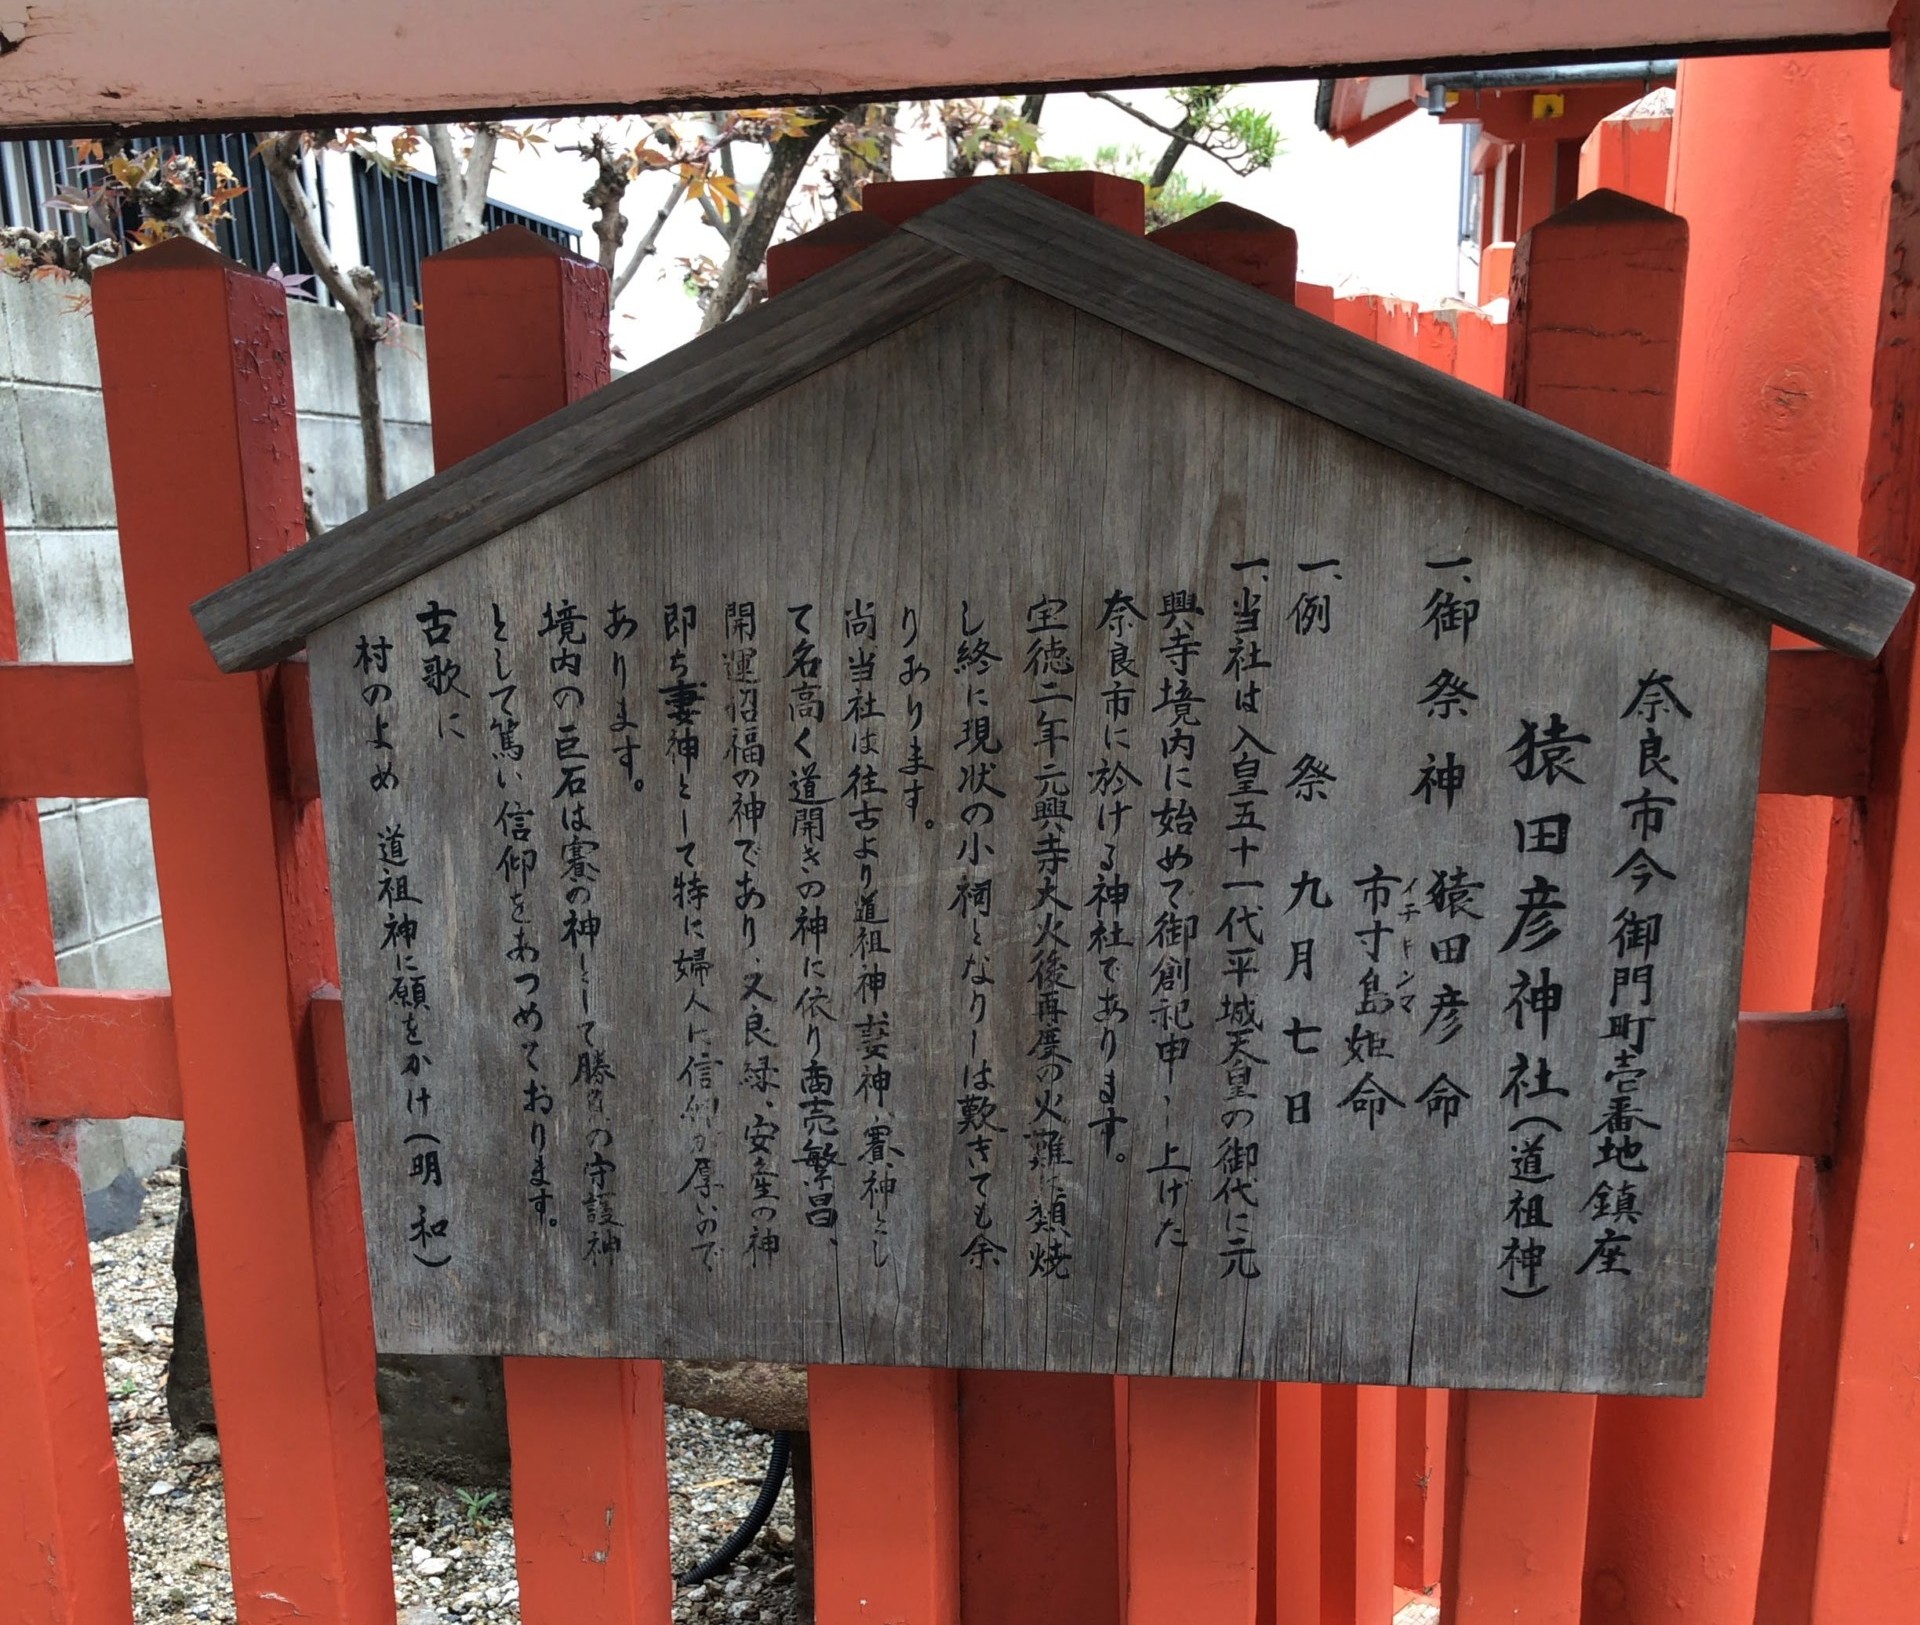 奈良市今御門町壱番地鎮座
猿田彦神社(道祖神)
一、御祭神 猿田彦命
イチキシマ
市寸島姫命
一、例 祭 九月七日
一、当社は入皇五十一代平城天皇の御代に元
興寺境内に始めて御創祀申し上げた
奈良市に於ける神社であります。
宝徳二年元興寺大火後再度の火難に類焼
し終に現状の小祠となりしは歎きても余
りあります。
尚当社は往古より道祖神、妻神、賽神とし
て名高く道開きの神に依り商売繁昌、
開運招福の神であり、又良縁、安産の神
即ち妻神として特に婦人に信仰が厚いので
あります。
境内の巨石は賽の神として勝負の守護神
として篤い信仰をあつめております。
古歌に
村のよめ 道祖神に願をかけ(明和)